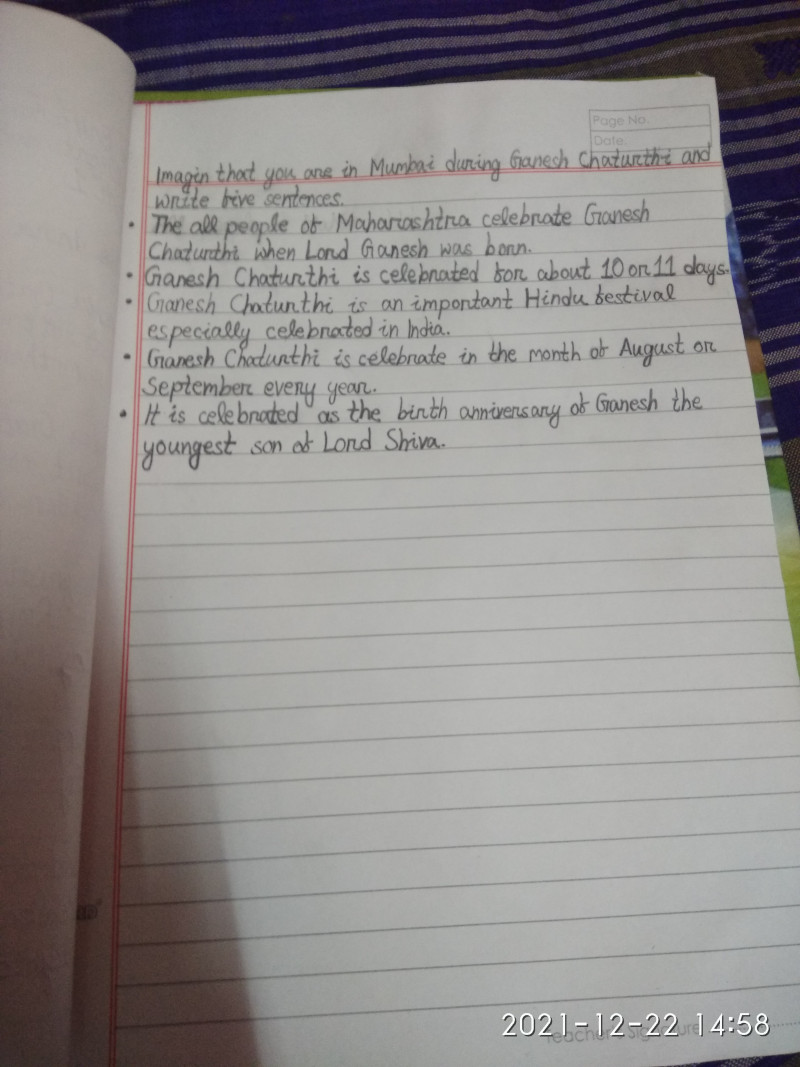 Page No.
Date.
Imagin that you are in Mumbai during Ganesh Chaturthi and
write five sentences.
• The all people of Maharashtra celebrate Ganesh
Chaturthi when Lord Ganesh was born.
• Ganesh Chaturthi is celebrated for about 10 or 11 days.
• Ganesh Chaturthi is an important Hindu festival
especially celebrated in India.
• Ganesh Chaturthi is celebrate in the month of August or
September every year.
• It is celebrated as the birth anniversary of Ganesh the
youngest son of Lord Shiva.
Teacher's Signature
2021-12-22 14:58